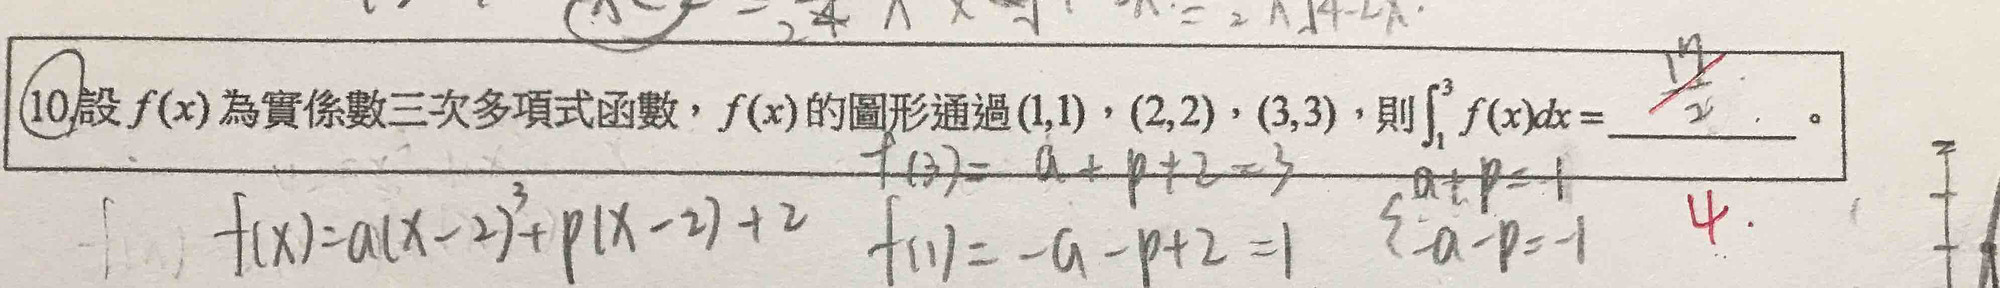 10.設 f(x) 為實係數三次多項式函數，f(x) 的圖形通過 (1,1)，(2,2)，(3,3)，則∫₁³ f(x)dx = 17/2 。
f(3) = a + p + 2 = 3
a + p = 1
4.
f(x) = a(x-2)³ + p(x-2) + 2
f(1) = -a - p + 2 = 1
{ -a - p = -1